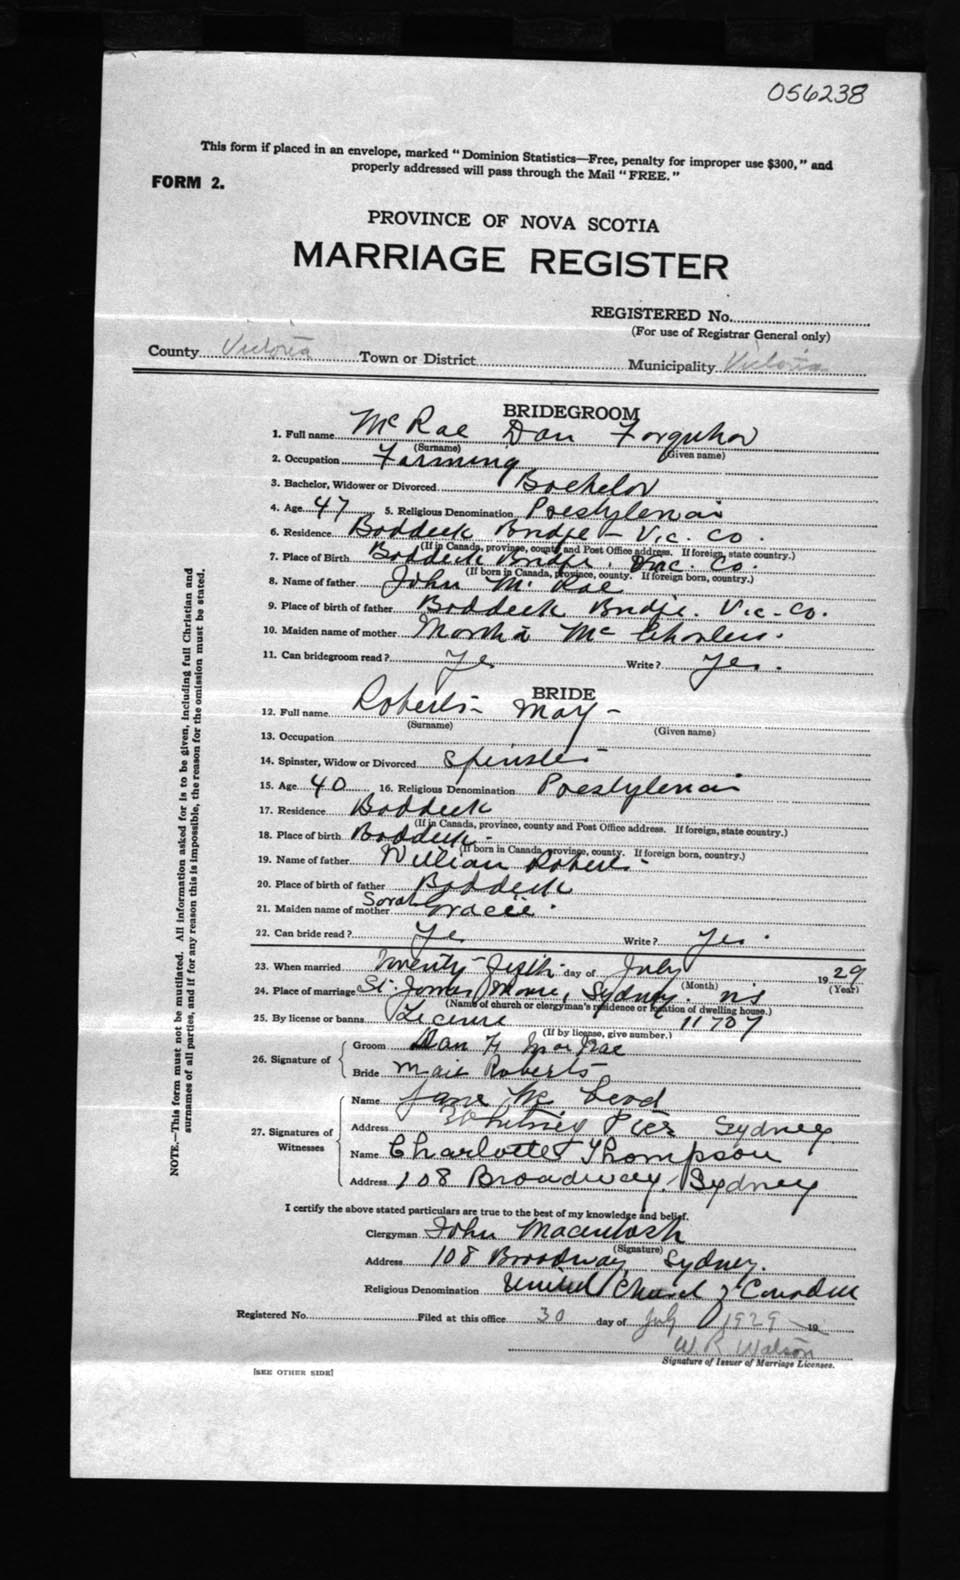 056238
This form if placed in an envelope, marked "Dominion Statistics—Free, penalty for improper use $300," and
properly addressed will pass through the Mail "FREE."
FORM 2.
PROVINCE OF NOVA SCOTIA
MARRIAGE REGISTER
REGISTERED No.
(For use of Registrar General only)
County Victoria Town or District Municipality Victoria
BRIDEGROOM
1. Full name McRae Dan Forquhar
(Surname) (Given name)
2. Occupation Farming
3. Bachelor, Widower or Divorced Bachelor
4. Age 47 5. Religious Denomination
6. Residence Baddeck Bridge - Vic. Co.
(If in Canada, province, county and Post Office address. If foreign, state country.)
7. Place of Birth Baddeck Bridge. Vic. Co.
(If born in Canada, province, county. If foreign born, country.)
8. Name of father John McRae
9. Place of birth of father Baddeck Bridge. Vic. Co.
10. Maiden name of mother Martha Mc
11. Can bridegroom read? Yes Write? Yes.
BRIDE
12. Full name Roberts - May -
(Surname) (Given name)
13. Occupation
14. Spinster, Widow or Divorced Spinster
15. Age 40 16. Religious Denomination
17. Residence Baddeck
(If in Canada, province, county and Post Office address. If foreign, state country.)
18. Place of birth Baddeck -
(If born in Canada, province, county. If foreign born, country.)
19. Name of father William Roberts -
20. Place of birth of father Baddeck
21. Maiden name of mother Sarah Gracie.
22. Can bride read? Yes Write? Yes.
23. When married Twenty-fifth day of July 1929
(Month) (Year)
24. Place of marriage St. James Manse, Sydney. NS
(Name of church or clergyman's residence or location of dwelling house.)
25. By license or banns License 11707
(If by license, give number.)
26. Signature of Groom Dan F MacRae
Bride Maie Roberts
27. Signatures of Witnesses
Name Jane McLeod
Address Whitney Pier Sydney
Name Charlotte Thompson
Address 108 Broadway, Sydney
I certify the above stated particulars are true to the best of my knowledge and belief.
Clergyman John Macintosh
(Signature)
Address 108 Broadway, Sydney.
Religious Denomination United Church of Canada
Registered No. Filed at this office 30 day of July 1929 19
W R Watson
Signature of Issuer of Marriage Licenses.
[SEE OTHER SIDE]
NOTE.—This form must not be mutilated. All information asked for is to be given, including full Christian and
surnames of all parties, and if for any reason this is impossible, the reason for the omission must be stated.